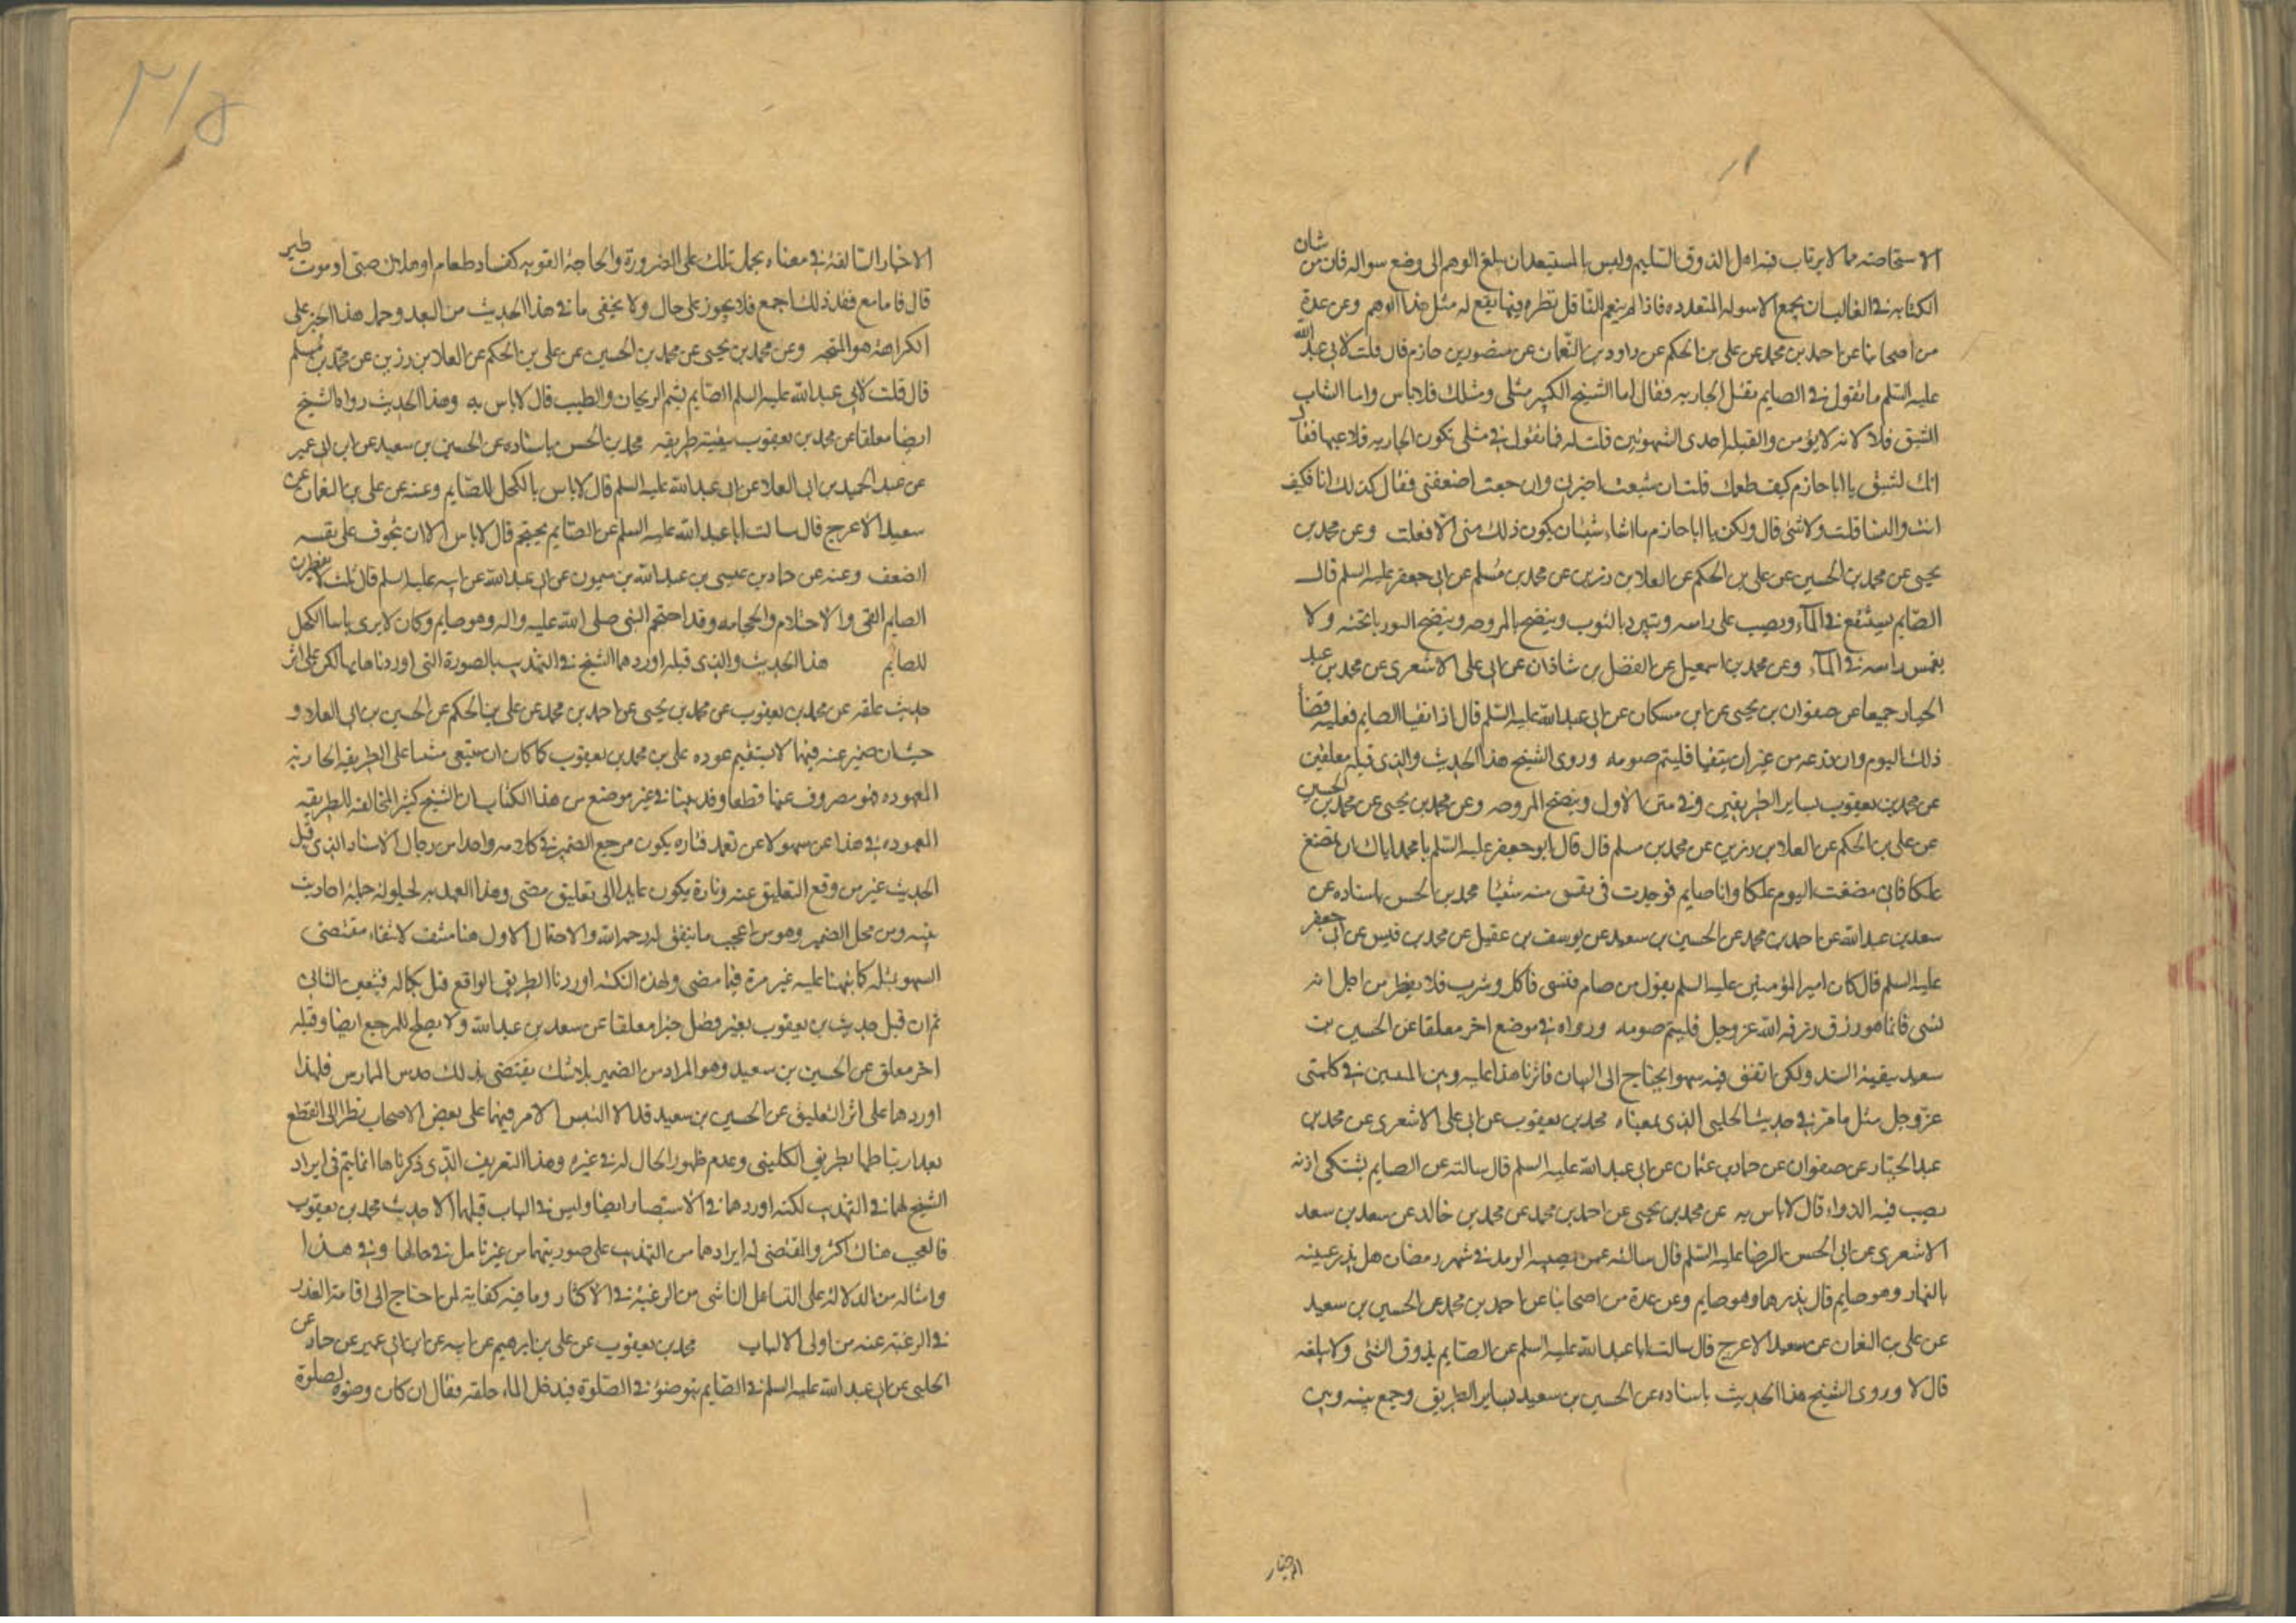 الاستحاضه مما لا يرتاب فيه اهل الذوق السليم وليس بالمستبعد ان يبلغ الوهم الى وضع سواله فان من شان
الكتابه في الغالب ان يجمع الاسوله المتعدده فاذا لم ينعم الناقل نظره فيها يقع له مثل هذا الوهم وعن عدة
من اصحابنا عن احمد بن محمد عن على بن الحكم عن داود بن النعمان عن منصور بن حازم قال قلت لابى عبد الله
عليه السلم ما تقول في الصايم يقبل الجاريه فقال اما الشيخ الكبير مثلى ومثلك فلا باس واما الشاب
الشبق فلا لانه لا يؤمن والقبله احدى الشهوتين قلت له فما تقول في مثلى تكون له الجاريه فلاعبها فقال
انك لشبق يا ابا حازم كيف طعمك قلت ان شبعت اضرنى وان جعت اضعفنى فقال كذلك انا فكيف
انت والنسا قلت ولا شى قال ولكن يا ابا حازم ما اشاء شيئا ان يكون ذلك منى الا فعلت وعن محمد بن
يحيى عن محمد بن الحسين عن على بن الحكم عن العلا بن رزين عن محمد بن مسلم عن ابى جعفر عليه السلم قال
الصايم يستنقع في الماء ويصب على راسه ويتبرد بالثوب وينضح بالمروحه وينضح البوريا تحته ولا
يغمس راسه في الماء وعن محمد بن اسمعيل عن الفضل بن شاذان عن ابى على الاشعرى عن محمد بن عبد
الجبار جميعا عن صفوان بن يحيى عن ابن مسكان عن ابى عبد الله عليه السلم قال اذا تقيا الصايم فعليه قضا
ذلك اليوم وان ذرعه من غير ان يتقيا فليتم صومه وروى الشيخ هذا الحديث والذى قبله معلقين
عن محمد بن يعقوب بساير الطريقين وفى متن الاول وينضح المروحه وعن محمد بن يحيى عن محمد بن الحسين
عن على بن الحكم عن العلا بن رزين عن محمد بن مسلم قال قال ابو جعفر عليه السلم يا محمد اياك ان تمضغ
علكا فانى مضغت اليوم علكا وانا صايم فوجدت فى نفسى منه شيئا محمد بن الحسن باسناده عن
سعد بن عبد الله عن احمد بن محمد عن الحسين بن سعيد عن يوسف بن عقيل عن محمد بن قيس عن ابى جعفر
عليه السلم قال كان امير المؤمنين عليه السلم يقول من صام فنسى فاكل وشرب فلا يفطر من اجل انه
نسى فانما هو رزق رزقه الله عز وجل فليتم صومه ورواه في موضع اخر معلقا عن الحسين بن
سعيد ببقية السند ولكن اتفق فيه سهو يحتاج الى البيان فاثرنا هذا عليه وبين المتنين في كلمتى
عز وجل مثل ما مر في حديث الحلبى الذى بمعناه محمد بن يعقوب عن ابى على الاشعرى عن محمد بن
عبد الجبار عن صفوان عن حماد بن عثمان عن ابى عبد الله عليه السلم قال سالته عن الصايم يشتكى اذنه
يصب فيه الدواء قال لا باس به عن محمد بن يحيى عن احمد بن محمد عن محمد بن خالد عن سعد بن سعد
الاشعرى عن ابى الحسن الرضا عليه السلم قال سالته عمن يصيبه الرمد في شهر رمضان هل يذر عينه
بالنهار وهو صايم قال يذرها وهو صايم وعن عدة من اصحابنا عن احمد بن محمد عن الحسين بن سعيد
عن على بن النعمان عن سعيد الاعرج قال سالت ابا عبد الله عليه السلم عن الصايم يذوق الشى ولا يبلغه
قال لا وروى الشيخ هذا الحديث باسناده عن الحسين بن سعيد بساير الطريق وجمع بينه وبين
الاخبار
٢١٥
الاخبار السالفة في معناه بحمل تلك على الضرورة والحاجة القويه كفساد طعام او هلاك صبى او موت طير
قال فاما مع فقد ذلك اجمع فلا يجوز على حال ولا يخفى ما في هذا الحديث من البعد وحمل هذا الخبر على
الكراهة هو المتجه وعن محمد بن يحيى عن محمد بن الحسين عن على بن الحكم عن العلا بن رزين عن محمد بن مسلم
قال قلت لابى عبد الله عليه السلم الصايم يشم الريحان والطيب قال لا باس به وهذا الحديث رواه الشيخ
ايضا معلقا عن محمد بن يعقوب ببقية طريقه محمد بن الحسن باسناده عن الحسين بن سعيد عن ابن ابى عمير
عن عبد الحميد بن ابى العلا عن ابى عبد الله عليه السلم قال لا باس بالكحل للصايم وعنه عن على بن النعمان عن
سعيد الاعرج قال سالت ابا عبد الله عليه السلم عن الصايم يحتجم قال لا باس الا ان يتخوف على نفسه
الضعف وعنه عن حماد بن عيسى بن عبد الله بن ميمون عن ابى عبد الله عن ابيه عليه السلم قال ثلث لا يفطرن
الصايم القى والاحتلام والحجامه وقد احتجم النبى صلى الله عليه واله وهو صايم وكان لا يرى باسا بالكحل
للصايم هذا الحديث والذى قبله اوردهما الشيخ في التهذيب بالصورة التى اوردناها بها لكن على اثر
حديث علقه عن محمد بن يعقوب عن محمد بن يحيى عن احمد بن محمد عن على بن الحكم عن الحسين بن ابى العلا و
حيث ان ضمير عنه فيهما لا يستقيم عوده على بن محمد بن يعقوب كما كان ان ينبغى مشيا على الطريقة الجاريه
المعهوده فهو مصروف عنها قطعا وقد بينا في غير موضع من هذا الكتاب ان الشيخ كثير المخالفه للطريقه
المعهوده في هذا عن سهو لا عن تعمد فتاره يكون مرجع الضمير في كلامه واحدا من رجال الاسناد الذى قبل
الحديث غير من وقع التعليق عنه وتارة يكون عايدا الى تعليق مضى وهذا العهد به لحيلولة جملة احاديث
بينه ومن محل الضمير وهو من اعجب ما يتفق له رحمه الله والاحتمال الاول هنا منتف لانتفاء مقتضى
السهو بمثله كما نبهنا عليه غير مرة فيما مضى ولهذه النكته اوردنا الطريق الواقع قبل بكماله فيتعين الثانى
ثم ان قبل حديث بن يعقوب بغير فصل خبرا معلقا عن سعد بن عبد الله ولا يصلح للمرجع ايضا وقبله
اخر معلق عن الحسين بن سعيد وهو المراد من الضمير بلا شك يقتضى بذلك حدس الممارس فلهذا
اوردهما على اثر التعليق عن الحسين بن سعيد قد الا التبس الامر فيهما على بعض الاصحاب نظرا الى القطع
بعد ارتباطهما بطريق الكلينى وعدم ظهور الحال له في غيره وهذا التعريف الذى ذكرناها انما يتم فى ايراد
الشيخ لهما في التهذيب لكنه اوردهما في الاستبصار ايضا وليس في الباب قبلهما الا حديث محمد بن يعقوب
فالعجب هناك اكثر والمقتضى له ايرادهما من التهذيب على صورتيهما من غير تامل في حالهما وفى هذا
وامثاله من الدلالة على التساهل الناشى من الرغبة في الاكثار وما فيه كفاية لمن احتاج الى اقامة العذر
في الرغبة عنه من اولى الالباب محمد بن يعقوب عن على بن ابرهيم عن ابيه عن ابن ابى عمير عن حماد عن
الحلبى عن ابى عبد الله عليه السلم في الصايم يتوضؤ في الصلوة فيدخل الماء حلقه فقال ان كان وضوه لصلوة